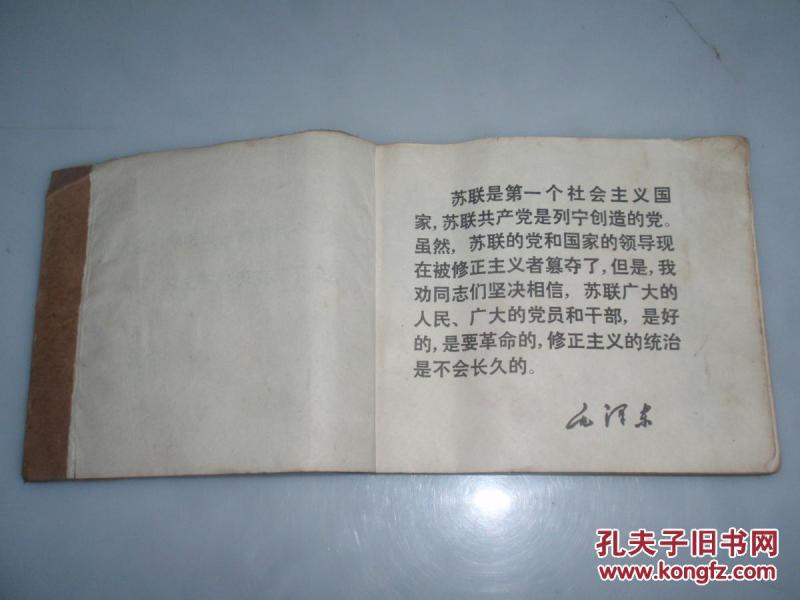 苏联是第一个社会主义国
家，苏联共产党是列宁创造的党。
虽然，苏联的党和国家的领导现
在被修正主义者篡夺了，但是，我
劝同志们坚决相信，苏联广大的
人民、广大的党员和干部，是好
的，是要革命的，修正主义的统治
是不会长久的。
毛泽东
孔夫子旧书网
www.kongfz.com